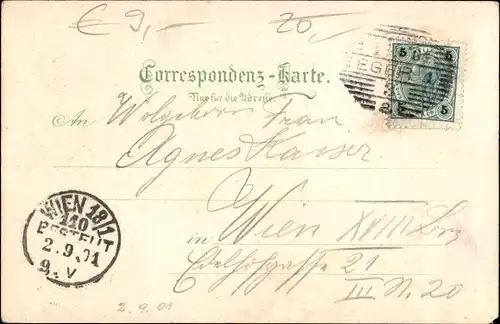 € 9,- 20,-
5 5
EGER
5 5
Correspondenz-Karte.
Nur für die Adresse.
An Wolgeborn Frau
Agnes Kaiser
in Wien XVIII Bez
Edelhofgasse 21
III N. 20
WIEN 18/1
110
BESTELLT
2.9.01
9.V
2.9.01